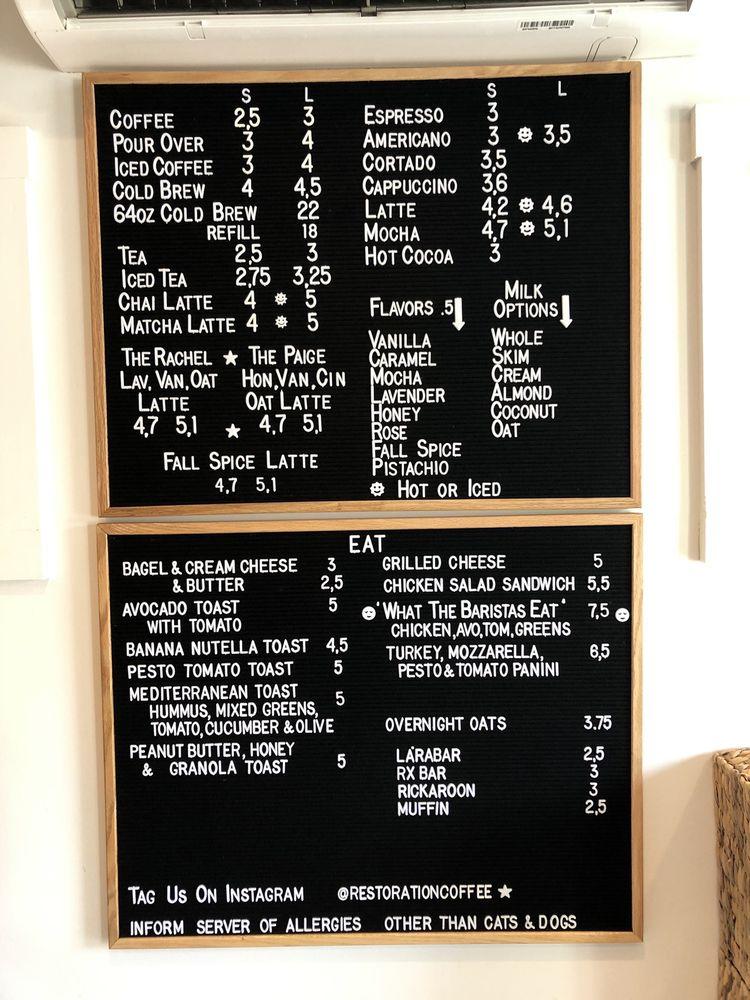 S L
COFFEE 2,5 3
POUR OVER 3 4
ICED COFFEE 3 4
COLD BREW 4 4,5
64OZ COLD BREW 22
REFILL 18
TEA 2,5 3
ICED TEA 2,75 3,25
CHAI LATTE 4 5
MATCHA LATTE 4 5
THE RACHEL ★ THE PAIGE
LAV, VAN, OAT HON, VAN, CIN
LATTE OAT LATTE
4,7 5,1 ★ 4,7 5,1
FALL SPICE LATTE
4,7 5,1
S L
ESPRESSO 3
AMERICANO 3 3,5
CORTADO 3,5
CAPPUCCINO 3,6
LATTE 4,2 4,6
MOCHA 4,7 5,1
HOT COCOA 3
FLAVORS .5
VANILLA
CARAMEL
MOCHA
LAVENDER
HONEY
ROSE
FALL SPICE
PISTACHIO
MILK
OPTIONS
WHOLE
SKIM
CREAM
ALMOND
COCONUT
OAT
HOT OR ICED
EAT
BAGEL & CREAM CHEESE 3
& BUTTER 2,5
AVOCADO TOAST 5
WITH TOMATO
BANANA NUTELLA TOAST 4,5
PESTO TOMATO TOAST 5
MEDITERRANEAN TOAST 5
HUMMUS, MIXED GREENS,
TOMATO, CUCUMBER & OLIVE
PEANUT BUTTER, HONEY
& GRANOLA TOAST 5
GRILLED CHEESE 5
CHICKEN SALAD SANDWICH 5,5
'WHAT THE BARISTAS EAT' 7,5
CHICKEN, AVO, TOM, GREENS
TURKEY, MOZZARELLA, 6,5
PESTO & TOMATO PANINI
OVERNIGHT OATS 3.75
LÄRABAR 2,5
RX BAR 3
RICKAROON 3
MUFFIN 2,5
TAG US ON INSTAGRAM @RESTORATIONCOFFEE ★
INFORM SERVER OF ALLERGIES OTHER THAN CATS & DOGS